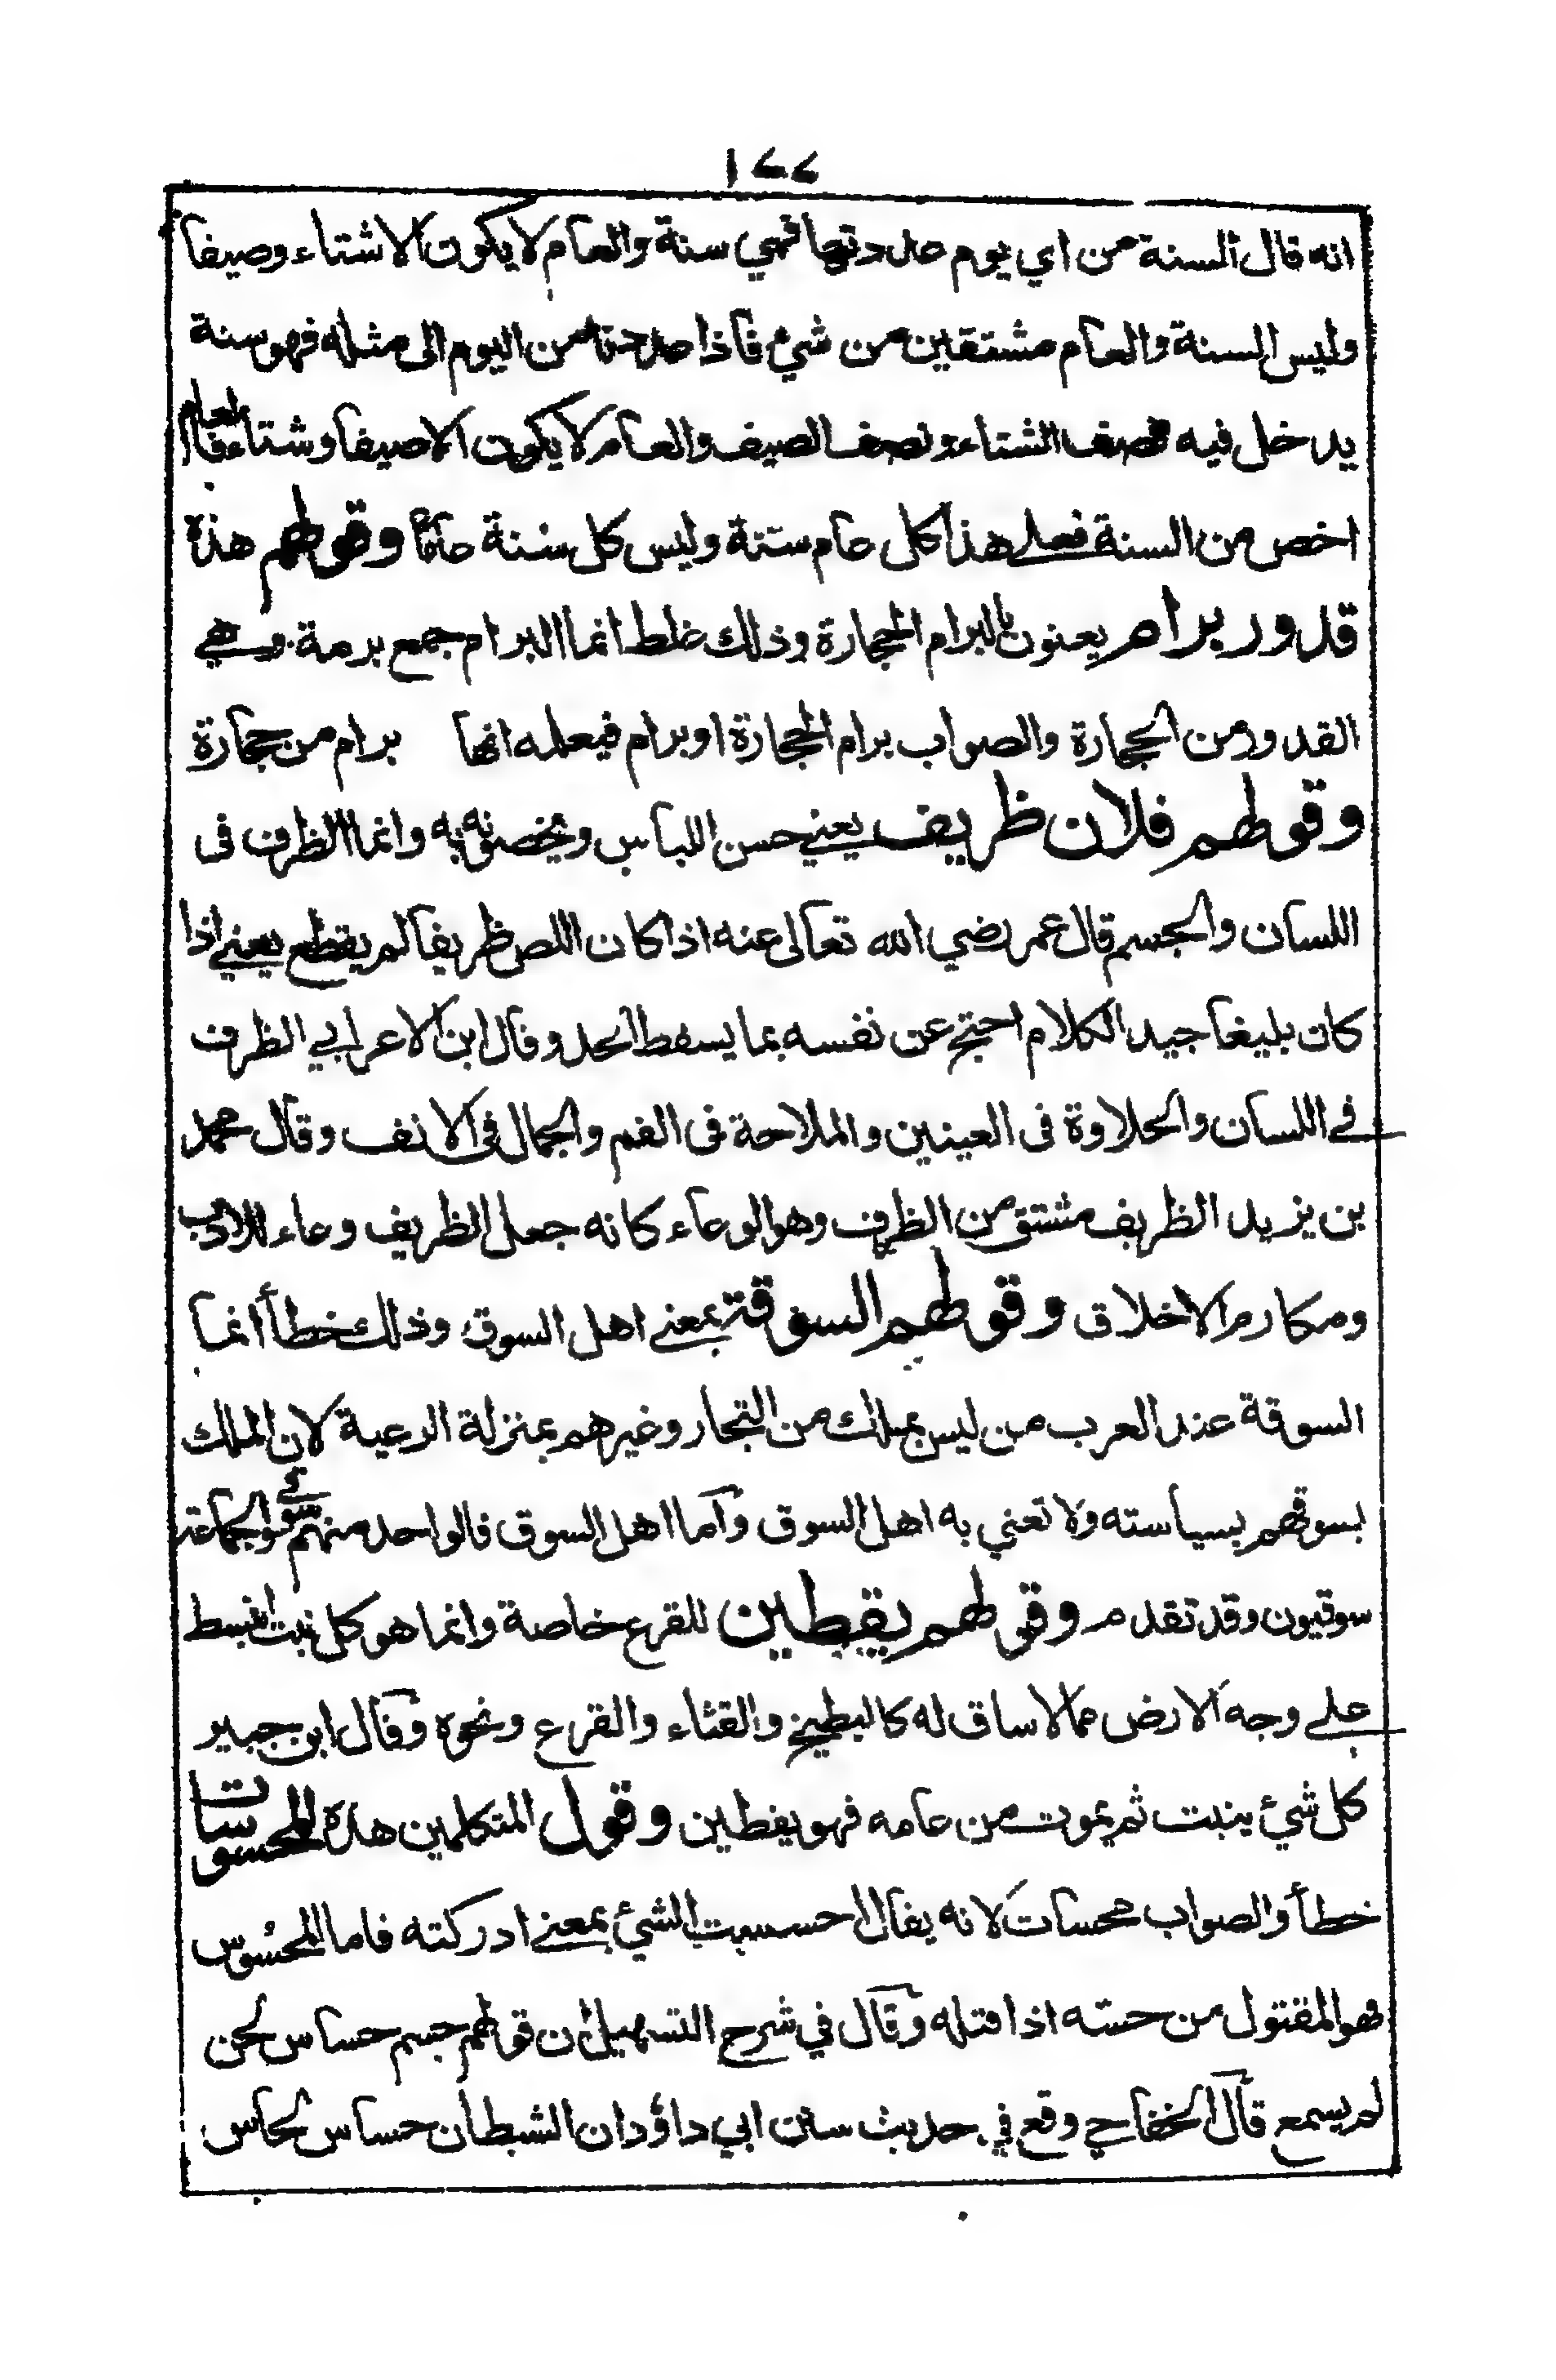 ١٢٢
انه قال السنة من اي يوم عددتها فهي سنة والعام لا يكون الا شتاء وصيفا
وليس السنة والعام مشتقين من شئ فاذا عددتا من اليوم الى مثله فهو سنة
يدخل فيه نصف الشتاء ونصف الصيف والعام لا يكون الا صيفا وشتاء فالعام
اخص من السنة فعلى هذا كل عام سنة وليس كل سنة عاما وقولهم هذة
قدور برام يعنون بالبرام الحجارة وذلك غلط انما البرام جمع برمة وهي
القدور من الحجارة والصواب برام الحجارة او برام فيعلمه انها برام من حجارة
وقولهم فلان ظريف يعني حسن اللباس ويخصونه به وانما الظرف فى
اللسان والجسم قال عمر رضي الله تعالى عنه اذا كان اللص ظريفا لم يقطع يعني اذا
كان بليغا جيد الكلام احتج عن نفسه بما يسقط الحد وقال ابن الاعرابي الظرف
في اللسان والحلاوة فى العينين والملاحة فى الفم والجمال فى الانف وقال محمد
بن يزيد الظريف مشتق من الظرف وهو الوعاء كانه جعل الظريف وعاء للادب
ومكارم الاخلاق وقولهم السوقة بمعنى اهل السوق وذلك خطأ انما
السوقة عند العرب من ليس بملك من التجار وغيرهم بمنزلة الرعية لان الملك
بسوقهم بسياسته ولا تعني به اهل السوق وأما اهل السوق فالواحد منهم سوقي والجماعة
سوقيون وقد تقدم وقولهم يقطين للقرع خاصة وانما هو كل نبت انبسط
على وجه الارض مما لا ساق له كالبطيخ والقثاء والقرع ونحوه وقال ابن جبير
كل شئ ينبت ثم يموت من عامه فهو يقطين وقول المتكلمين هذه المحسوسات
خطأ والصواب محسات لانه يقال احسست الشئ بمعنى ادركته فاما المحسُوس
فهو المقتول من حسّه اذا قتله وقال في شرح التسهيل ان قولهم جسم حساس لحن
لم يسمع قال الخفاجي وقع في حديث سنن ابي داؤد ان الشيطان حساس لحاس